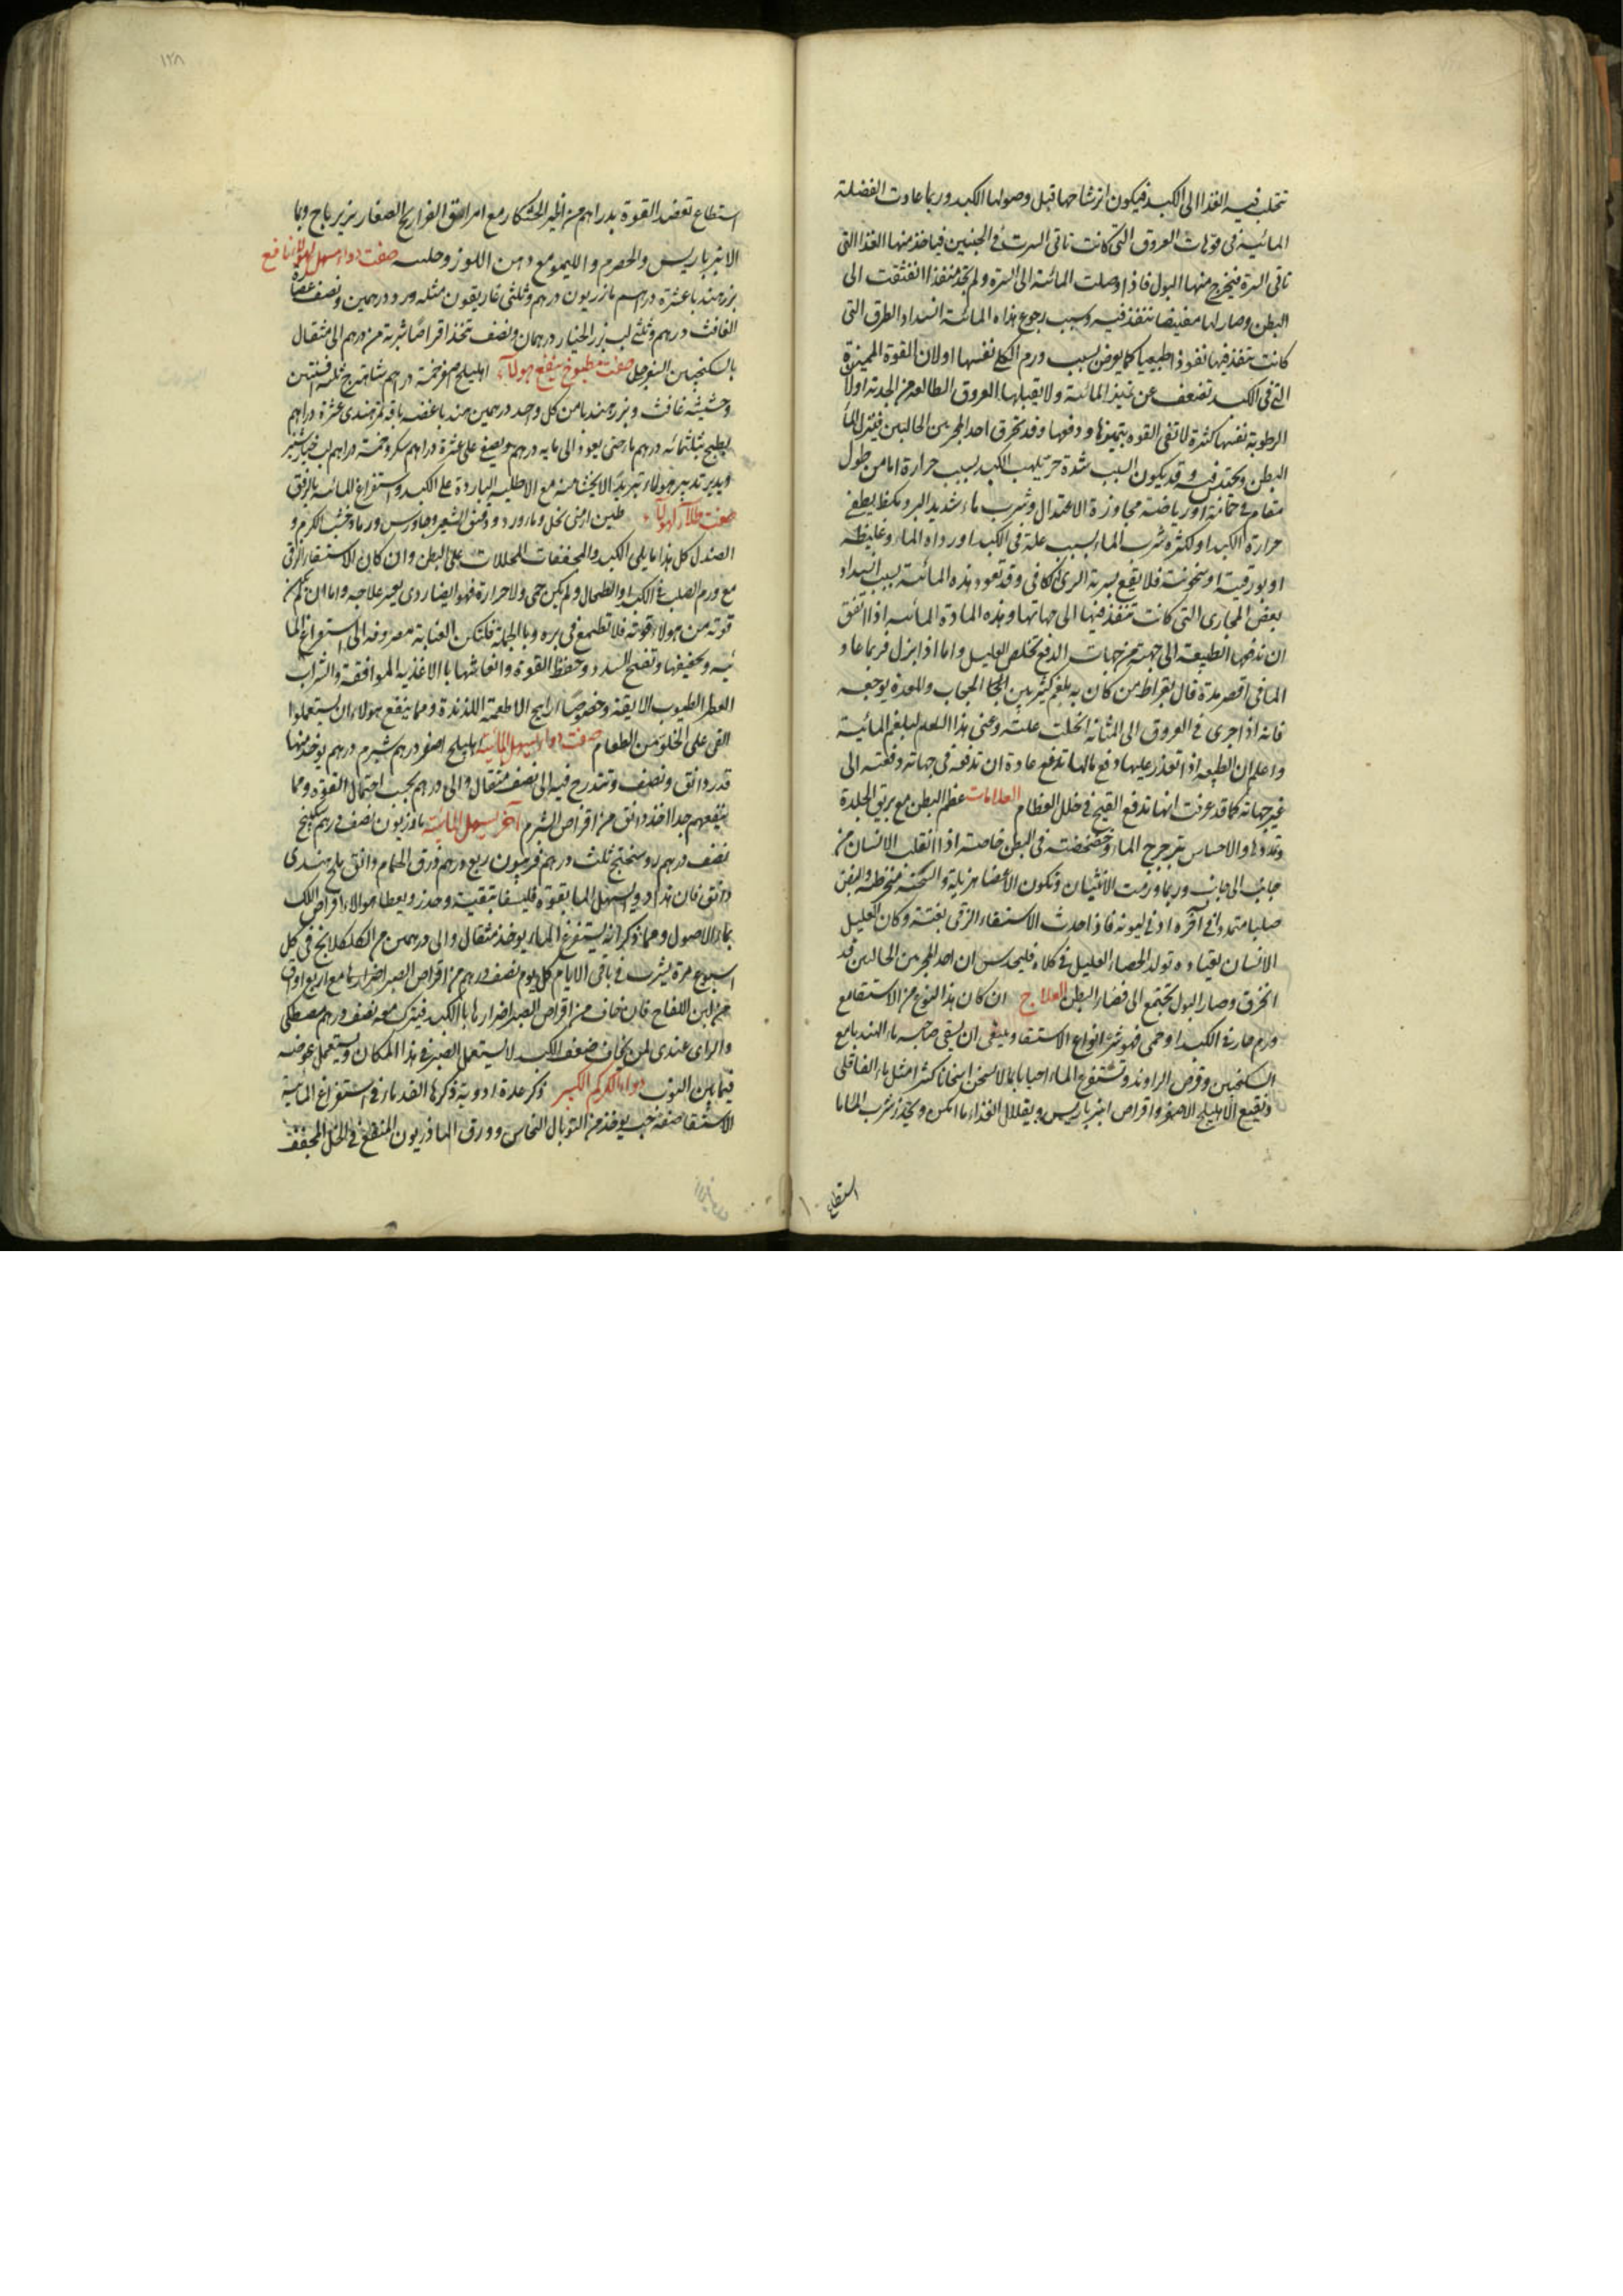 تتحلب فيه الغذا الى الكبد فيكون انرشاحها قبل وصولها الكبد وربما عادت الفضلة
المائية فى فوهات العروق التى كانت تاتى السرت فى الجنين فياخذ منها الغذا التى
تاتى السرة فيخرج منها البول فاذا وصلت المائية الى السرة ولم تجد منفذا انفتقت الى
البطن وصار لها مغيضا تنفذ فيه وسبب رجوع هذه المائية انسداد الطرق التى
كانت تنفذ فيها نفوذا طبيعيا كما يعرض بسبب ورم الكلى نفسها اولان القوة المميزة
التى فى الكبد تضعف عن تميز المائية ولا يقبلها العروق الطالعة من الحدبة اولان
الرطوبة نفسها كثيرة لا تفى القوه بتميزها ودفعها وقد تخرق احد المجريين الحالبين فيتزل الما
البطن ويحتقن فيه وقد يكون السبب شدة حر يلهب الكبد بسبب حرارة اما من طول
مقام فى حمام او رياضة مجاوزة الاعتدال وشرب ماء شديد البرد يطفى
حرارة الكبد او لكثرة شرب الماء بسبب علة فى الكبد اورداه الماء وغليظه
او بورقيته او سخونته فلا يقع بسربه الرى الكافى وقد تعود هذه المائية بسبب انسداد
بعض المجارى التى كانت تنفذ فيها الى جهاتها وهذه المادة المائيه اذا اتفق
ان تدفعها الطبيعة الى جهة من جهات الدفع تخلص العليل واما اذا بزل فربما عاد
الما فى اقصر مدة قال بقراط من كان به بلغم كثير بين الحجاب والمعدة يوجعه
فانه اذا جرى فى العروق الى المثانة انحلت علته وعنى بهذا البلغم المائية
واعلم ان الطبيعه اذا تعذر عليها دفع ما لها تدفع عادة ان تدفعه فى جهاته دفعته الى
غير جهاته كما قد عرفت انها تدفع القيح فى خلل العظام العلامات عظم البطن مع بريق الجلدة
وتمددها والاحساس بترجرج الماء وخضخضته فى البطن خاصة اذا انقلب الانسان من
جانب الى جانب وربما ورمت الانثيان وتكون الاعضا هزيلة والسحنة منخرطه والنبض
صلبا متمددا فى آخره ادنى ليونة فاذا حدث الاستسقاء الزقى بغتة وكان العليل
الانسان يعتاده تولد الحصاة العليل فى كلاه فليحدس ان احد المجريين الحالبين قد
انخرق وصار البول يجتمع الى فضاء البطن العلاج ان كان هذا النوع من الاستسقا مع
ورم حار فى الكبد او حمى فهو شر انواع الاستسقا وينبغى ان يسقى صاحبه ماء الهندبا مع
السكنجبين وقرص الراوند وتستفرغ الماء احيانا بما لا يسخن اسخانا كثيرا مثل ماء القاقلى
ونقيع الاهليلج الاصفر واقراص انبرباريس ويقلل الغذاء ما امكن ويحذر شرب الماء ما
استطاع
١٢٨
استطاع تعضد القوة بدراهم من الخبز الخشكار مع امراق الفراريج الصغار بزيرباج وبما
الانبرباريس والحصرم والليمو مع دهن اللوز وحلبه صفت دواء مسهل لهولاء نافع
بزر هندبا عشرة دراهم مازريون درهم وثلثى غاريقون مثله ورد درهمين ونصف عصارة
الغافث درهم وثلثى لب بزر الخيار درهمان ونصف تتخذ اقراصا شربة من درهم الى مثقال
بالسكنجبين السفرجلى صفت مطبوخ ينفع هولاء اهليلج اصفر خمسة دراهم شاهترج ثلثه افسنتين
وحشيشه غافث وبزر هندبا من كل واحد درهمين هندبا غضه باقه تمر هندى عشرة دراهم
يطبخ بثلثمائه درهم ماء حتى يعود الى مايه درهم ويصفى على عشرة دراهم سكر وخمسة دراهم لب خيارشنبر
ويدبر تدبير هولاء تبريد الاحشا منه مع الاطلية الباردة على الكبد واستفراغ المائيه بالرفق
صفت طلاء لهولاء طين ارمنى بخل وماورد ودقيق الشعير وجاورس ورماد خشب الكرم و
الصندل كل هذا ما يلى الكبد والمجففات المحللات على البطن وان كان الاستسقاء الزقى
مع ورم الصلب فى الكبد او الطحال ولم يكن حمى ولا حرارة فهو ايضا ردى يعسر علاجه واما ان لم يكن
قوته من هولاء قوته فلا تطمع فى بره وبالجملة فلتكن العناية مصروفه الى استفراغ الما
ئيه وتجفيفها وتفتح السدد وحفظ القوة وانعاشها با الاغذيه الموافقة والشراب
العطر الطيوب الانيقة وخصوصا ارايح الاطعمة اللذيذة ومما ينفع هولاء ان يستعملوا
القى على الخلو من الطعام صفت دواء يسهل المائية اهليلج اصفر درهم شبرم درهم يوخذ منها
قدر دانق ونصف وتتدرج فيه الى نصف مثقال والى درهم بحسب احتمال القوة ومما
ينفعهم جدا اخذ دانق من اقراص الشبرم آخر يسهل المائية مازريون نصف درهم سكبينج
نصف درهم روسختج ثلث درهم فربيون ربع درهم ذرق الحمام دانق ملح هندى
دانق فان هذا دوا يسهل الما بقوة فليسقا بتقية وحذر ويعطا هولاء اقراص اللك
بماء الاصول ومما ذكر انه يستفرغ الماء ان يوخذ مثقال والى درهمين من الكلكلانج فى كل
اسبوع مرة يشرب فى باقى الايام كل يوم نصف درهم من اقراص الصبر اضرارها مع اربع اواق
من لبن اللقاح فان خاف من اقراص الصبر اضرارها بالكبد فيترك معه نصف درهم مصطكى
والراى عندى لمن يخاف ضعف الكبد لا يستعمل الصبر فى هذا المكان ويستعمل عوضه
فيما بين النوب دواء الكركم الكبير ذكر عدة ادوية ذكرها القدماء فى استفراغ المائية
الاستسقا صفة حب يوخذ من التوبال النحاس وورق الماذريون المنقع فى الخل المجفف